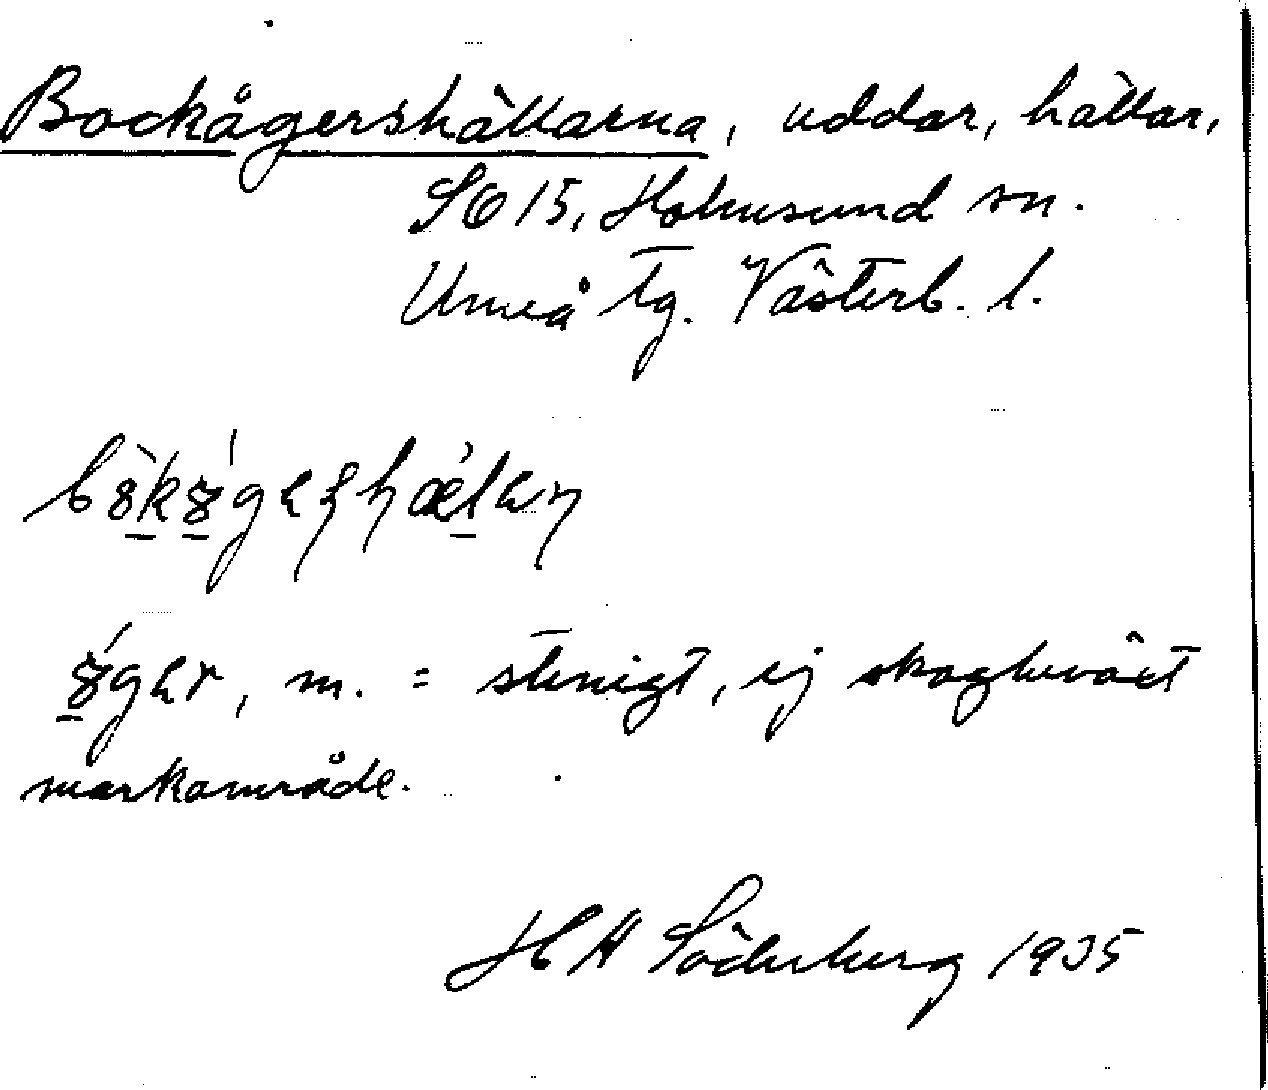 Bockågershällarna, uddar, hällar,
SO 15, Holmsund sn.
Umeå tg. Västerb. l.
m. = stenigt, ej skogbeväxt
markområde.
H H Söderberg 1935